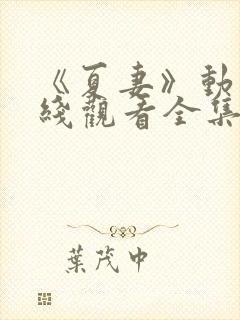 《夏妻》動
綫觀看全集
葉茂中